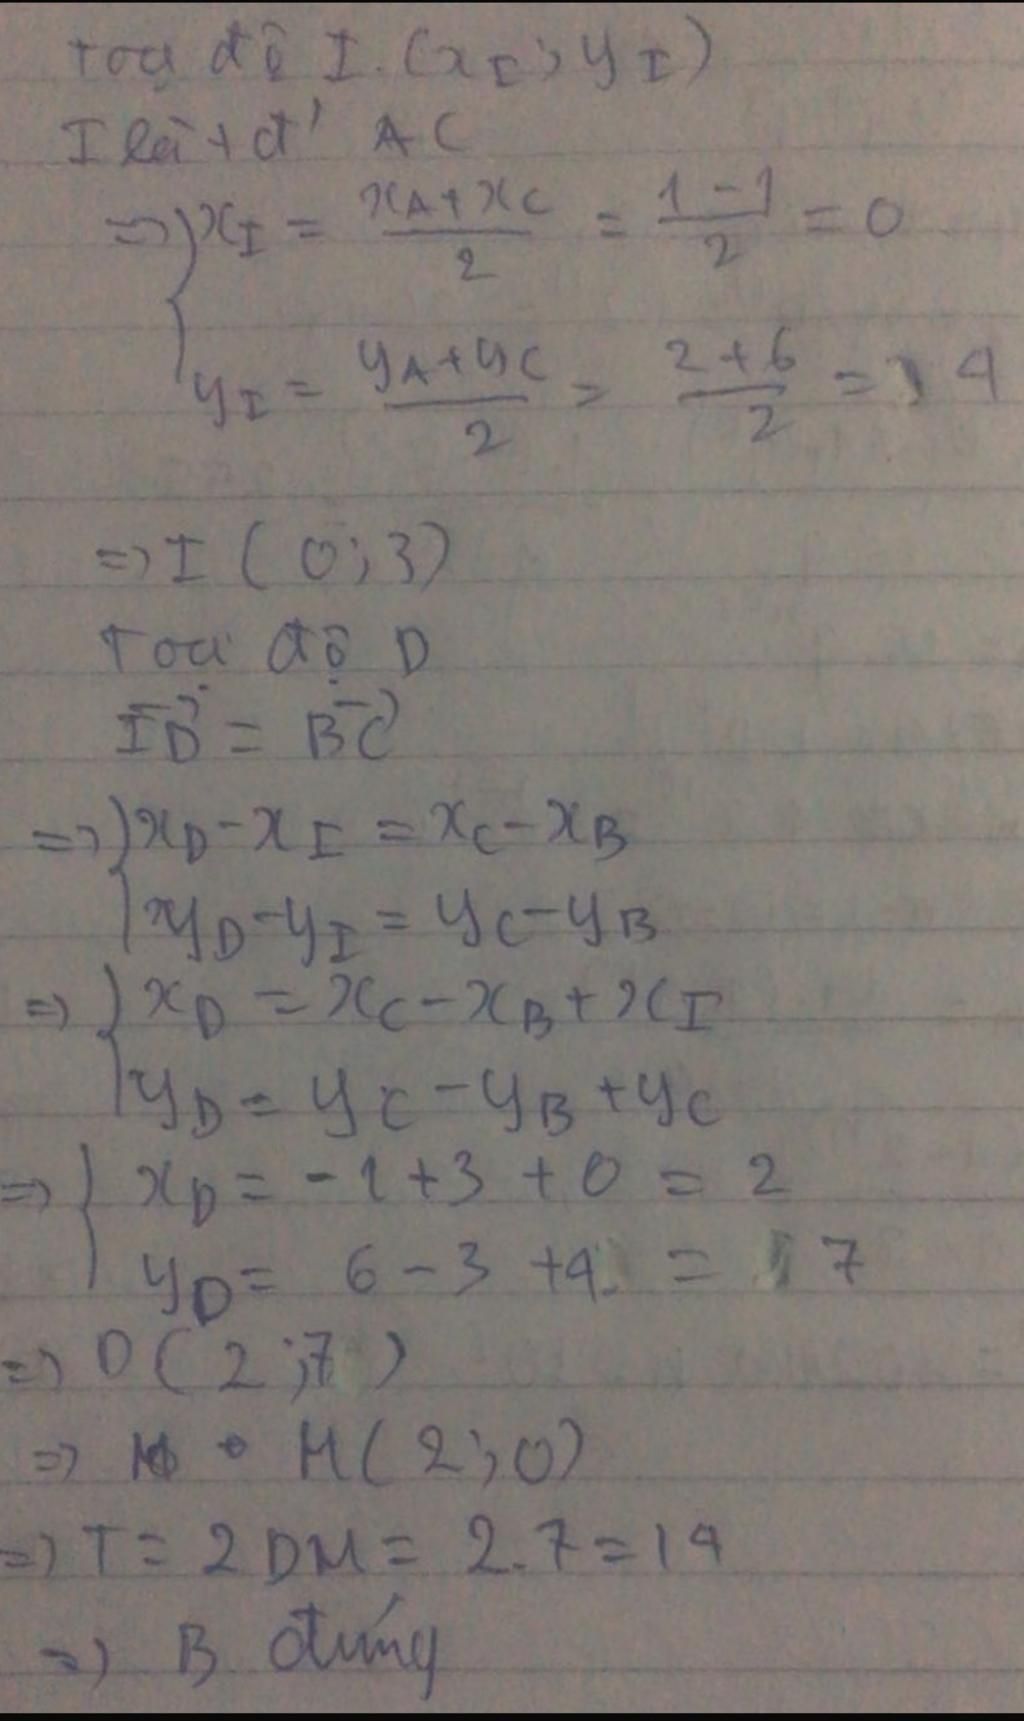 Toạ độ I. (xI; yI)
I là tđ' AC
=> { xI = (xA + xC)/2 = (1 - 1)/2 = 0
yI = (yA + yC)/2 = (2 + 6)/2 = 4
=> I (0; 3)
Toạ độ D
ID→ = BC→
=> { xD - xI = xC - xB
yD - yI = yC - yB
=> { xD = xC - xB + xI
yD = yC - yB + yC
=> { xD = -1 + 3 + 0 = 2
yD = 6 - 3 + 4 = 7
=> D (2; 7)
=> M (2; 0)
=> T = 2DM = 2.7 = 14
=> B đúng